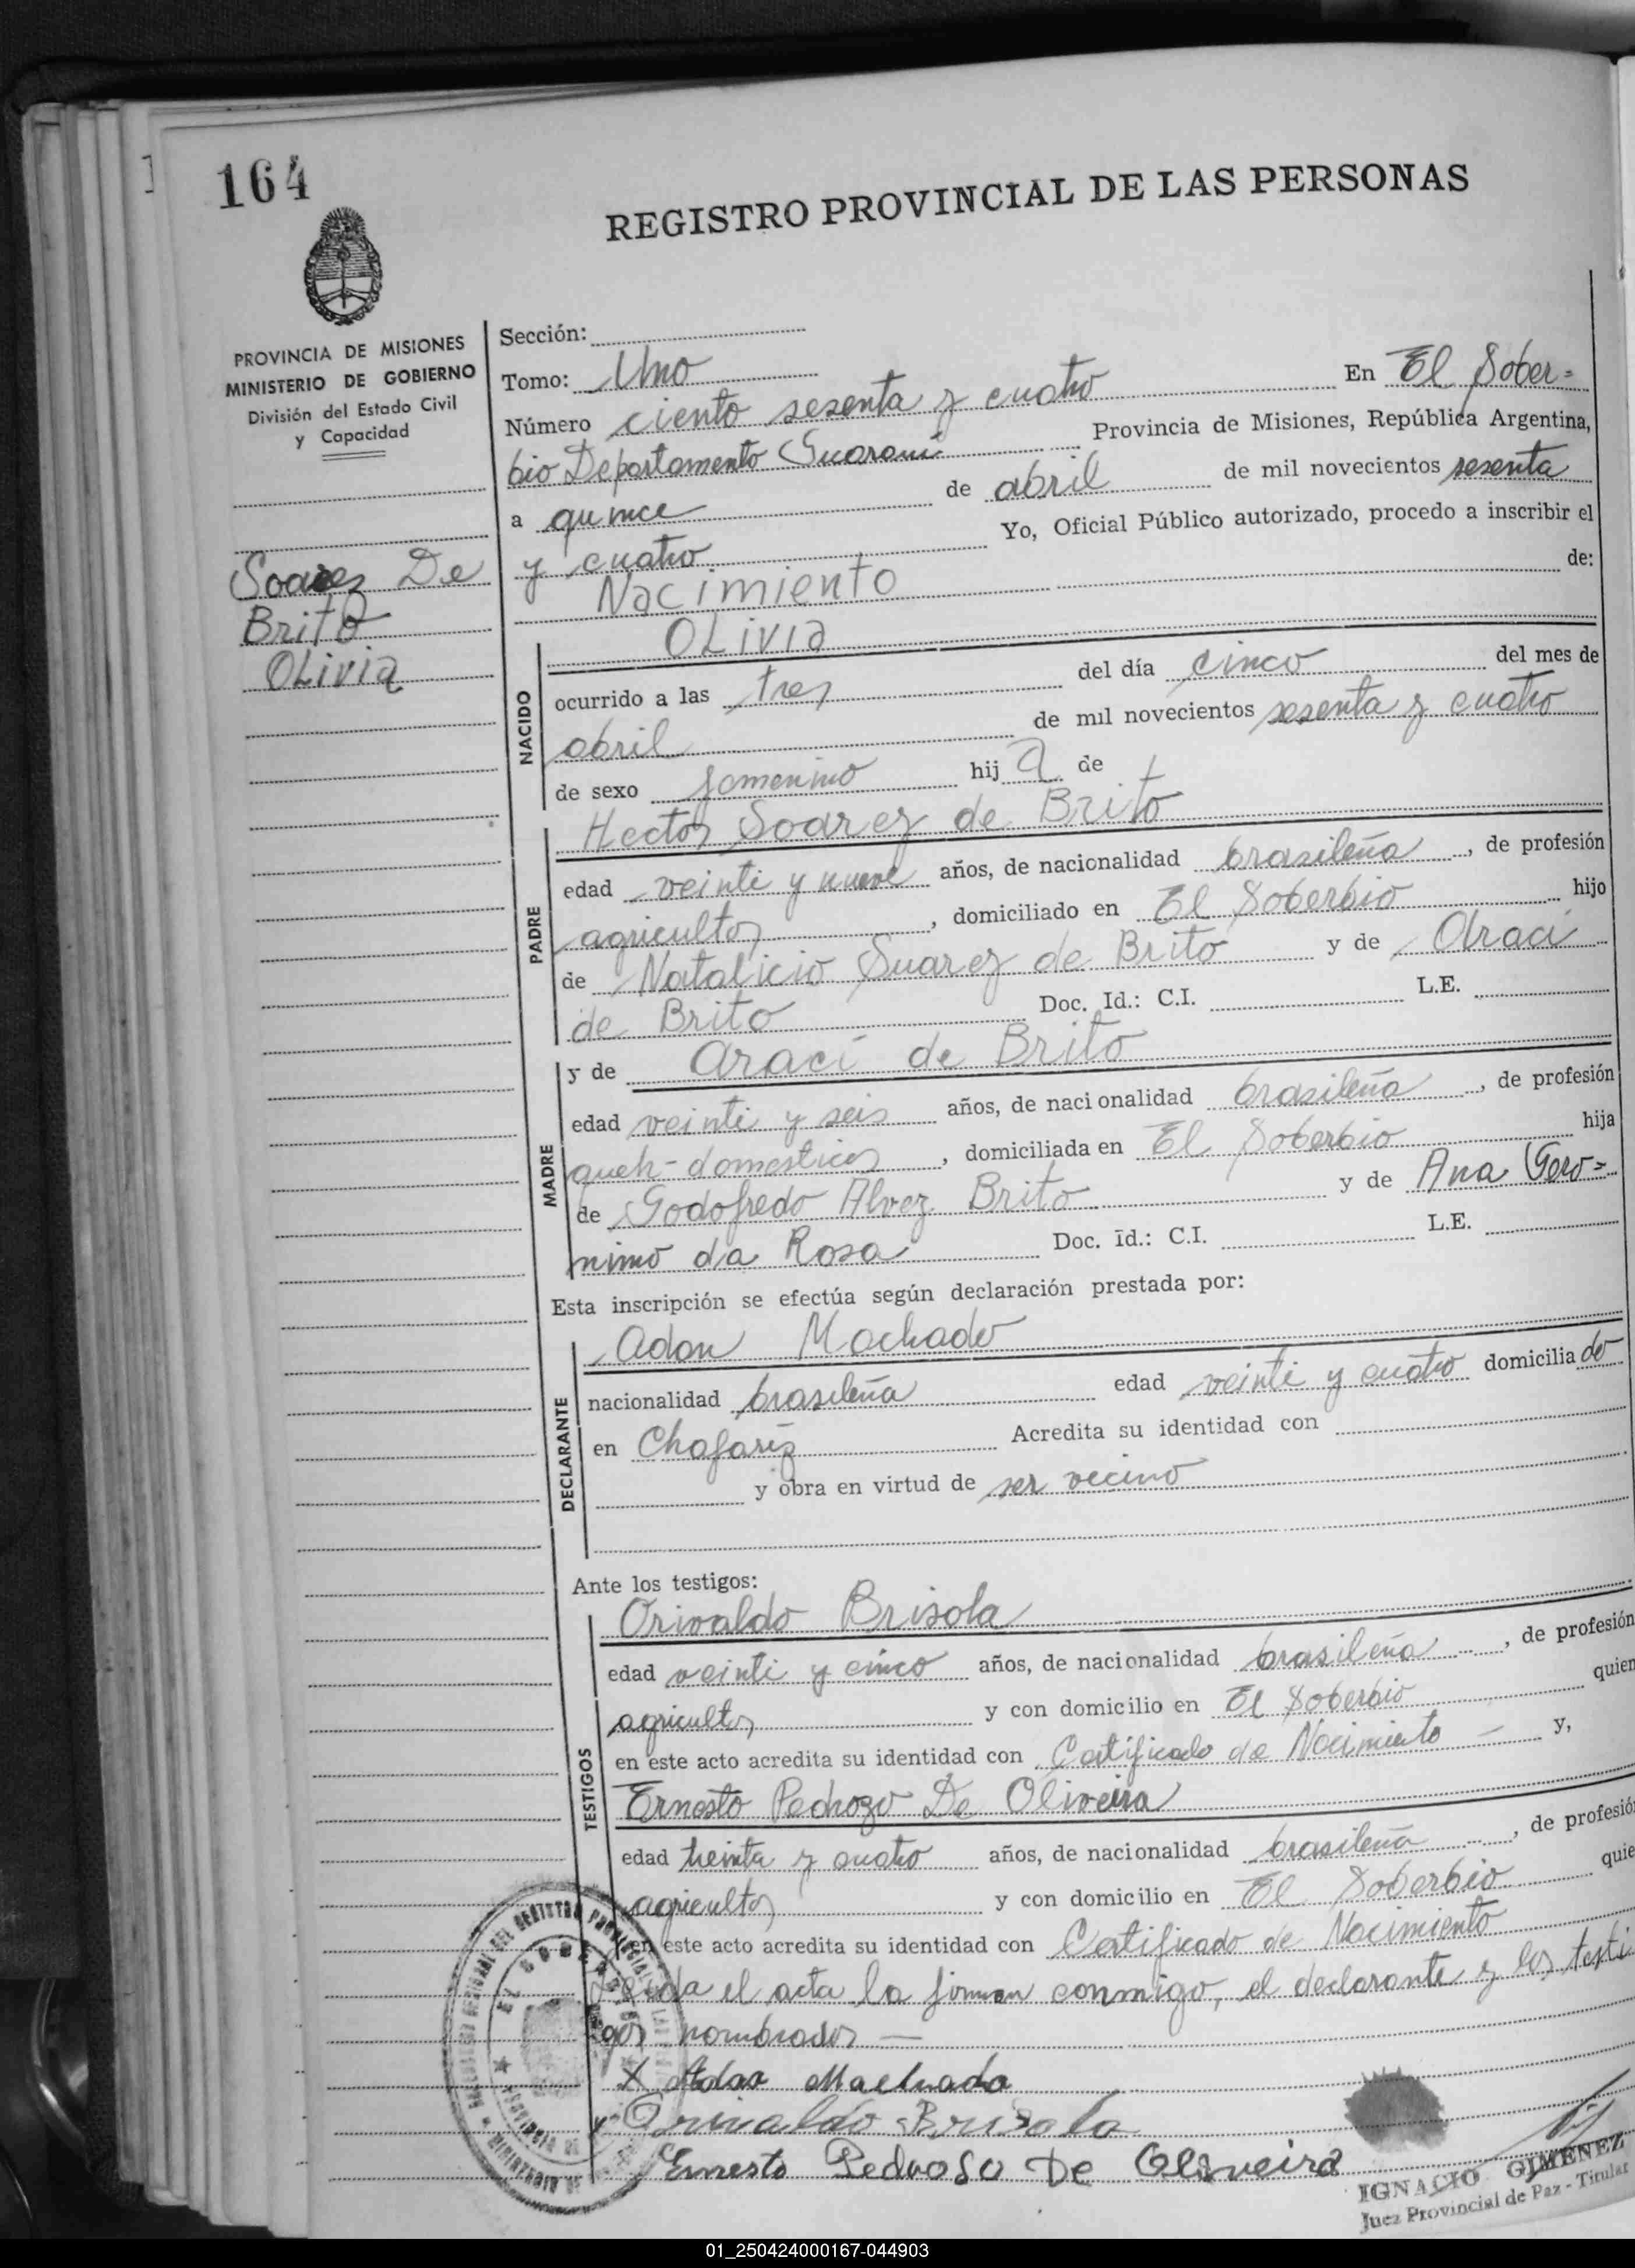 164
REGISTRO PROVINCIAL DE LAS PERSONAS
PROVINCIA DE MISIONES
MINISTERIO DE GOBIERNO
División del Estado Civil
y Capacidad
Soarez De
Brito
Olivia
Sección:
Tomo: Uno
Número ciento sesenta y cuatro En El Sober=
bio Departamento Guarani Provincia de Misiones, República Argentina,
a quince de abril de mil novecientos sesenta
y cuatro Yo, Oficial Público autorizado, procedo a inscribir el
Nacimiento de:
NACIDO
Olivia
ocurrido a las tres del día cinco del mes de
abril de mil novecientos sesenta y cuatro
de sexo femenino hij a de
PADRE
Hector Soarez de Brito
edad veinti y nueve años, de nacionalidad brasileña, de profesión
agricultor, domiciliado en El Soberbio hijo
de Natalicio Suarez de Brito y de Araci
de Brito Doc. Id.: C.I. L.E.
MADRE
y de Araci de Brito
edad veinti y seis años, de nacionalidad brasileña, de profesión
queh-domesticos, domiciliada en El Soberbio hija
de Godofredo Alvez Brito y de Ana Gero=
nimo da Rosa Doc. Id.: C.I. L.E.
Esta inscripción se efectúa según declaración prestada por:
DECLARANTE
Adan Machado
nacionalidad brasileña edad veinti y cuatro domiciliado
en Chafariz Acredita su identidad con
y obra en virtud de ser vecino
Ante los testigos:
TESTIGOS
Orivaldo Brisola
edad veinti y cinco años, de nacionalidad brasileña, de profesión
agricultor y con domicilio en El Soberbio quien
en este acto acredita su identidad con Certificado de Nacimiento — y,
Ernesto Pedrozo De Oliveira
edad treinta y cuatro años, de nacionalidad brasileña, de profesió
agricultor y con domicilio en El Soberbio quie
en este acto acredita su identidad con Certificado de Nacimiento
Leida el acta la firman conmigo, el declarante y los testi
gos nombrados —
X Adao Machado
Orivaldo Brisola
Ernesto Pedroso De Oliveira
IGNACIO GIMENEZ
Juez Provincial de Paz - Titular
01_250424000167-044903